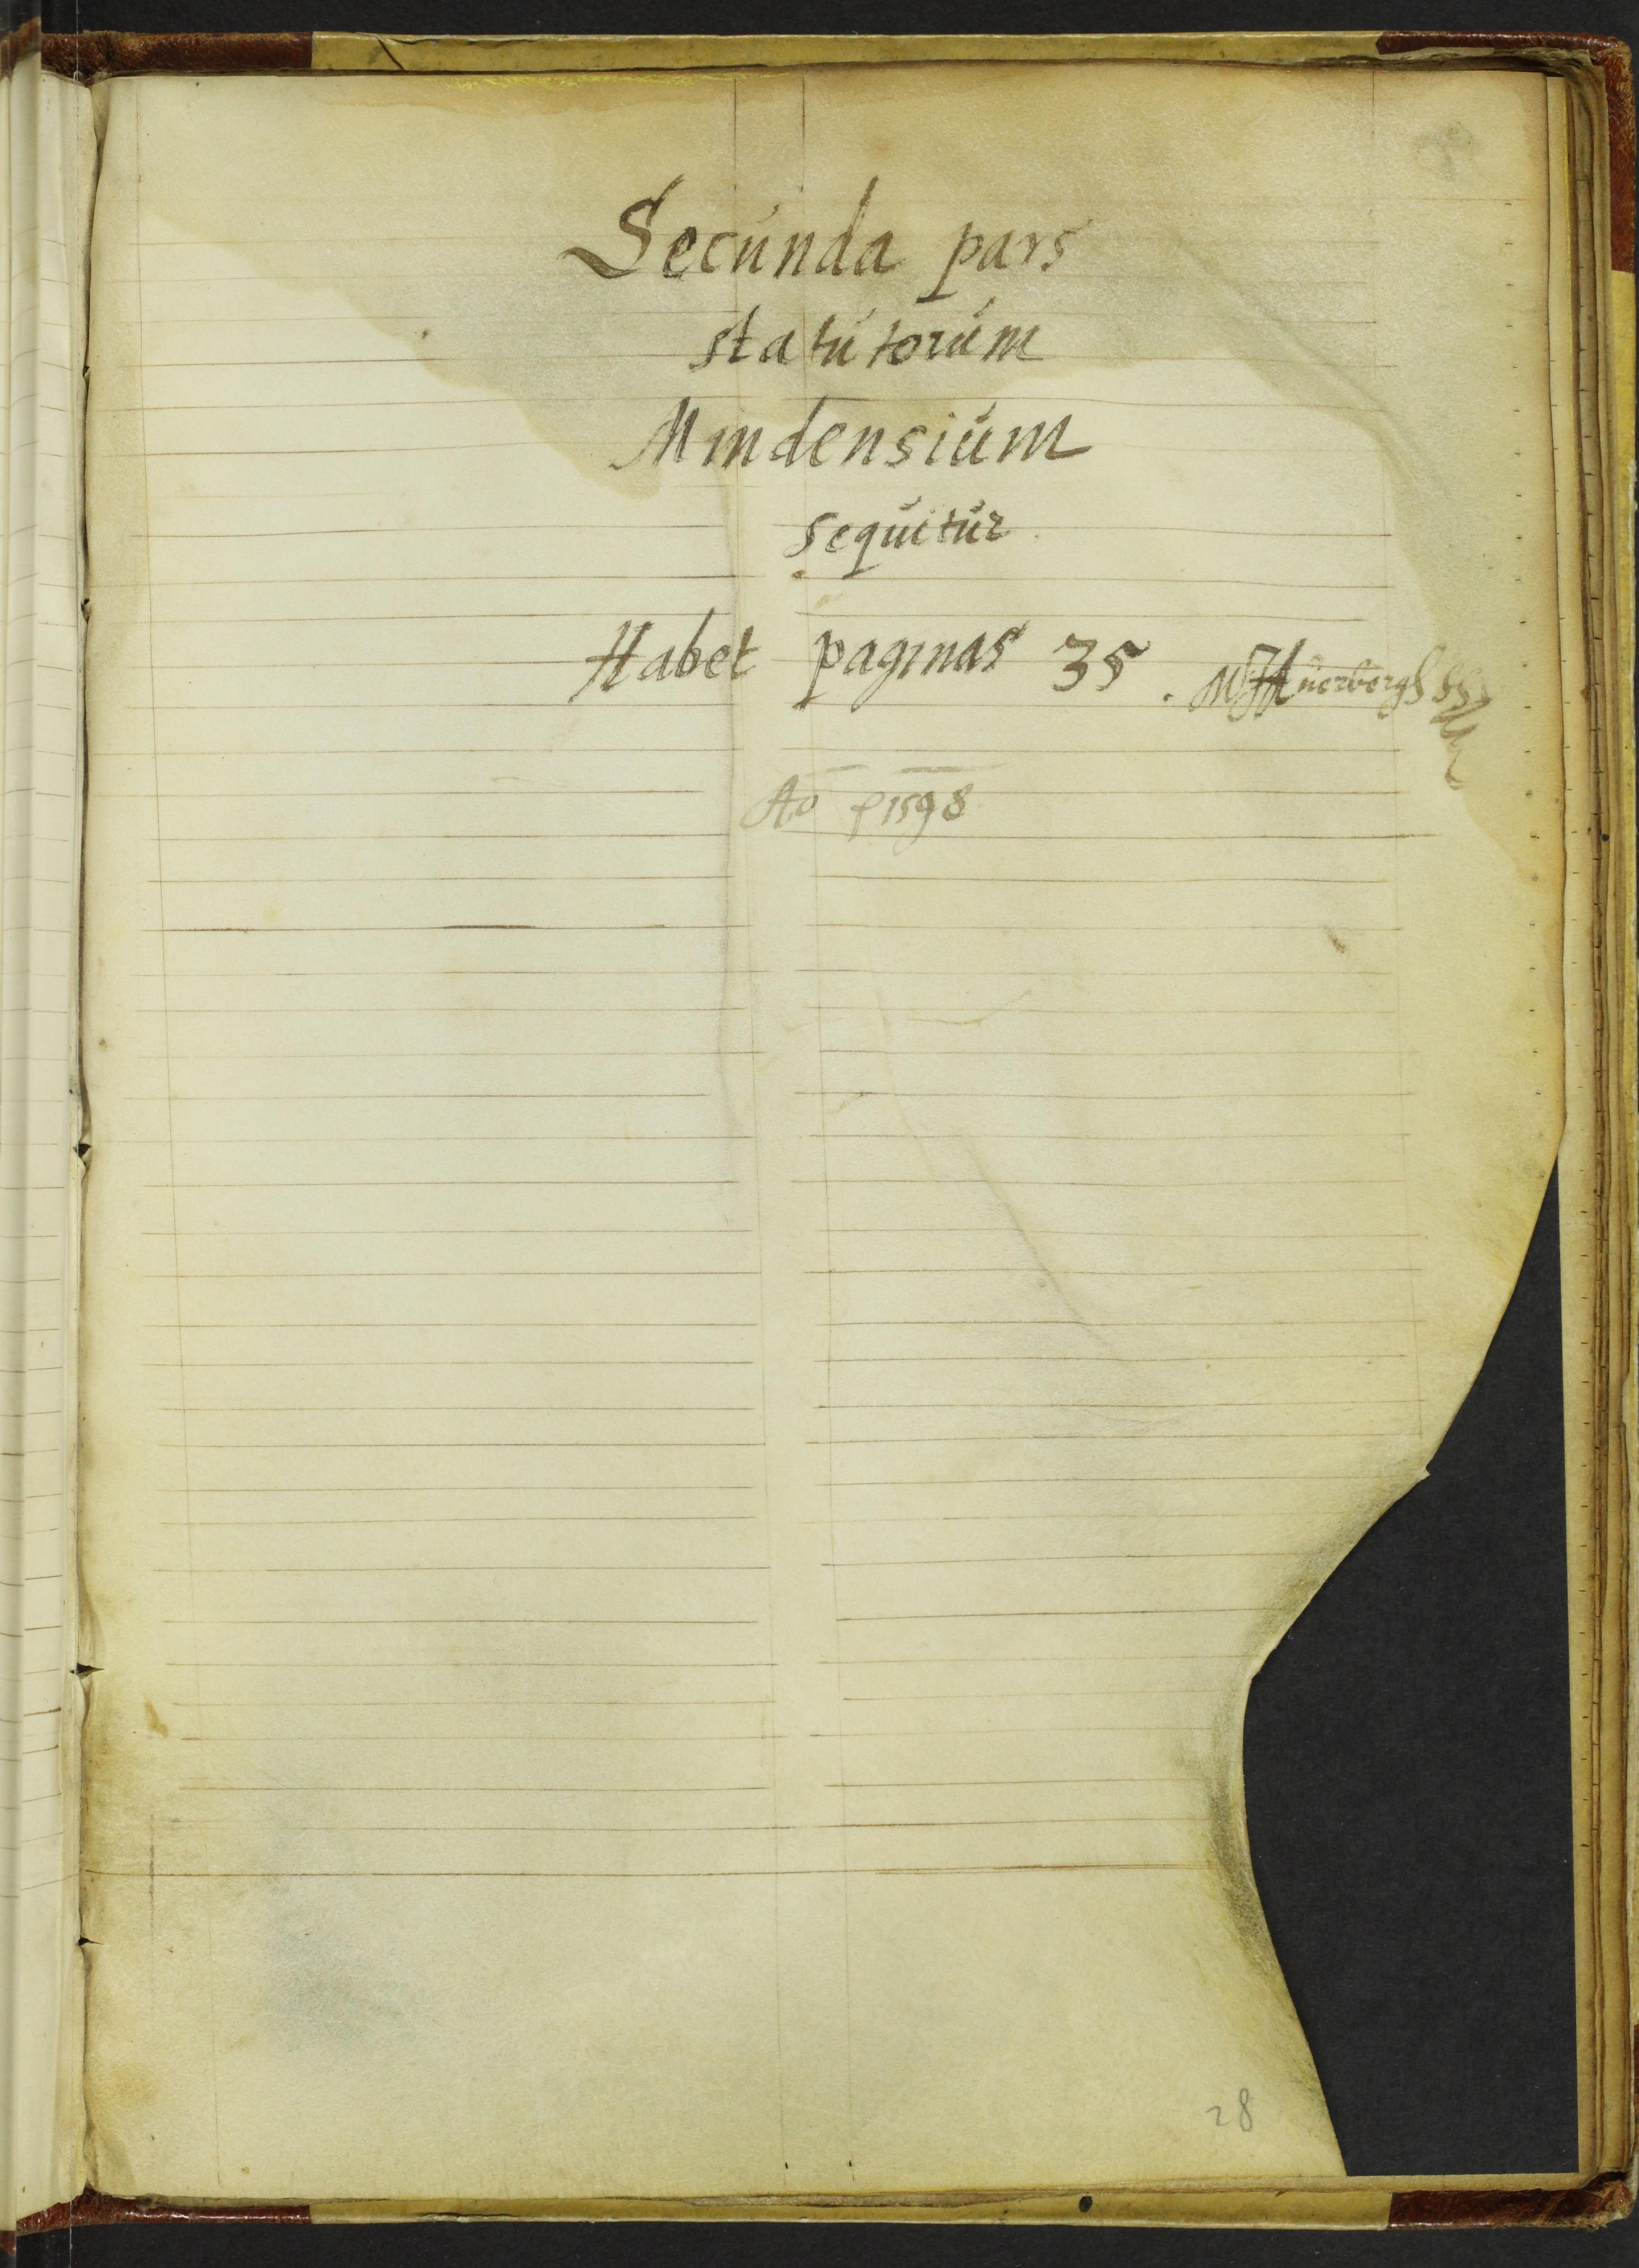 Secunda pars
statutorum
Mindensium
sequitur
Habet paginas 35.
Ao 1598
28